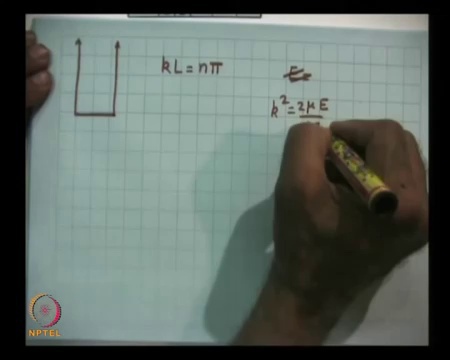 kL = nπ
k² = 2μE
NPTEL